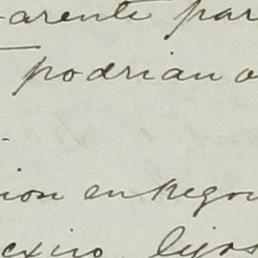 arente par
podrian o
ion en Regou
exiro lijos